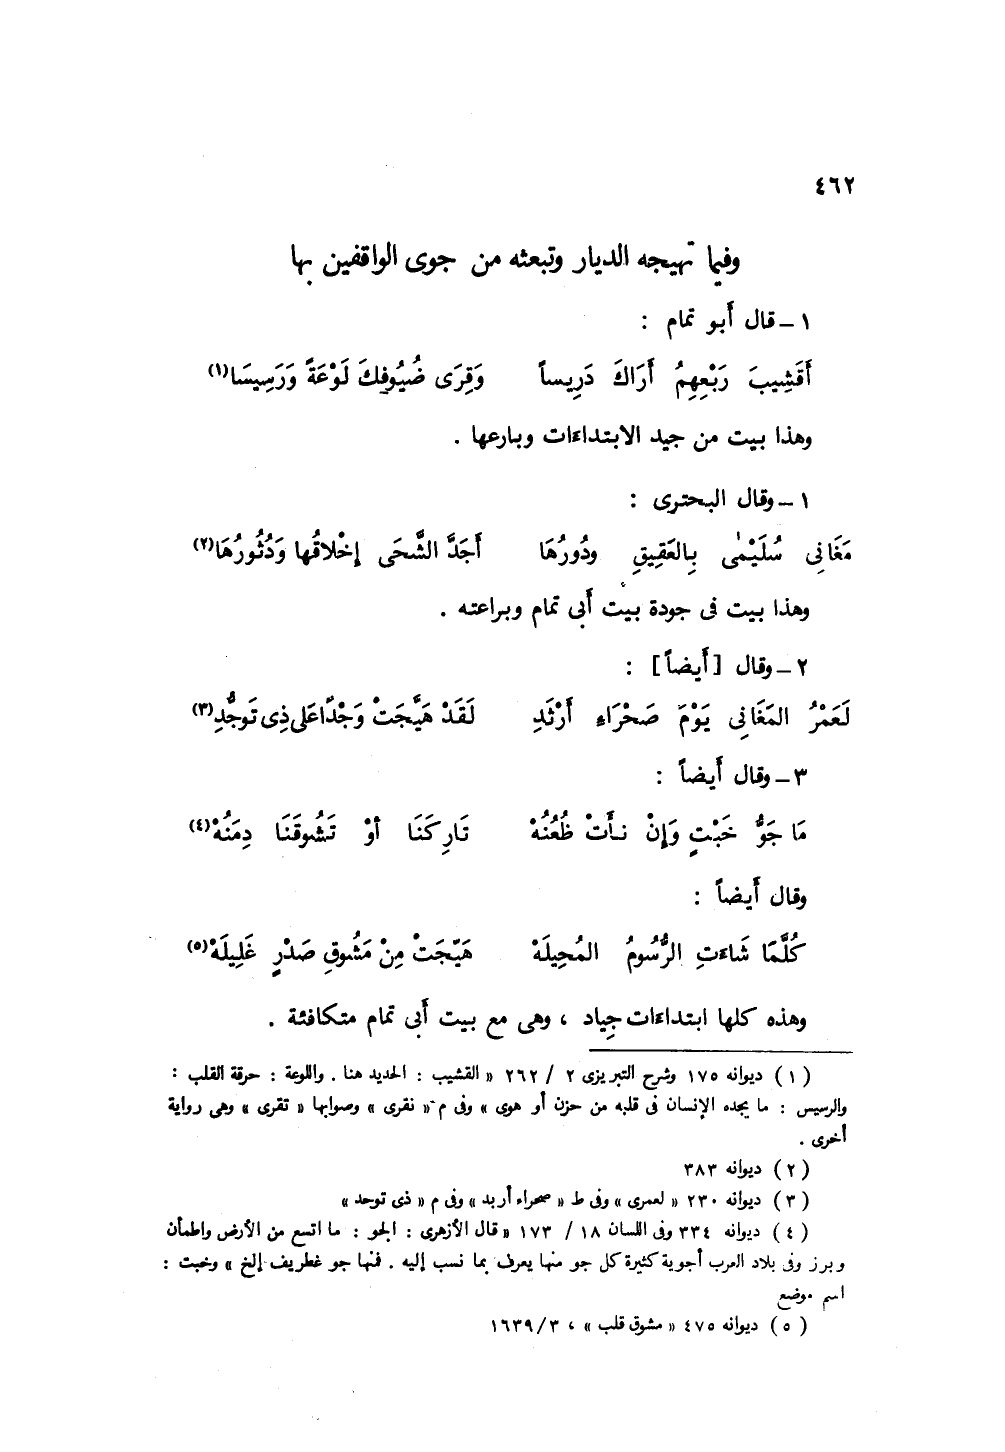 ٤٦٢
وفيما تهيجه الديار وتبعثه من جوى الواقفين بها
١ – قال أَبو تمام :
أَقَشِيبَ رَبْعِهِمُ أَرَاكَ دَرِيساً وَقِرَى ضُيُوفِكَ لَوْعَةً وَرَسِيسَا(١)
وهذا بيت من جيد الابتداءات وبارعها .
١ – وقال البحترى :
مَغَانِى سُلَيْمٰى بِالعَقِيقِ ودُورُهَا أَجَدَّ الشَّجَى إخْلاقُها وَدُثُورُهَا(٢)
وهذا بيت فى جودة بيت أَبى تمام وبراعته .
٢ – وقال [أَيضاً] :
لَعَمْرُ المَغَانِى يَوْمَ صَحْرَاءِ أَرْثَدِ لَقَدْ هَيَّجَتْ وَجْدًا عَلى ذِى تَوجُّدِ(٣)
٣ – وقال أَيضاً :
مَا جَوُّ خَبْتٍ وَإِنْ نَأَتْ ظُعُنُهْ تَارِكَنَا أوْ تَشُوقَنَا دِمَنُهْ(٤)
وقال أَيضاً :
كُلَّمَا شَاءَتِ الرُّسُومُ المُحِيلَهْ هَيّجَتْ مِنْ مَشُوقِ صَدْرٍ غَلِيلَهْ(٥)
وهذه كلها ابتداءات جِياد ، وهى مع بيت أَبى تمام متكافئة .
(١) ديوانه ١٧٥ وشرح التبريزى ٢ / ٢٦٢ « القشيب : الجديد هنا . واللوعة : حرقة القلب :
والرسيس : ما يجده الإنسان فى قلبه من حزن أو هوى » وفى م « نقرى » وصوابها « تقرى » وهى رواية
أخرى .
(٢) ديوانه ٣٨٣
(٣) ديوانه ٢٣٠ « لعمرى » وفى ط « صحراء أربد » وفى م « ذى توحد »
(٤) ديوانه ٣٣٤ وفى اللسان ١٨ / ١٧٣ « قال الأزهرى : الجو : ما اتسع من الأرض واطمأن
وبرز وفى بلاد العرب أجوية كثيرة كل جو منها يعرف بما نسب إليه . فمنها جو غطريف إلخ » وخبت :
اسم موضع
(٥) ديوانه ٤٧٥ « مشوق قلب » ، ٣/١٦٣٩